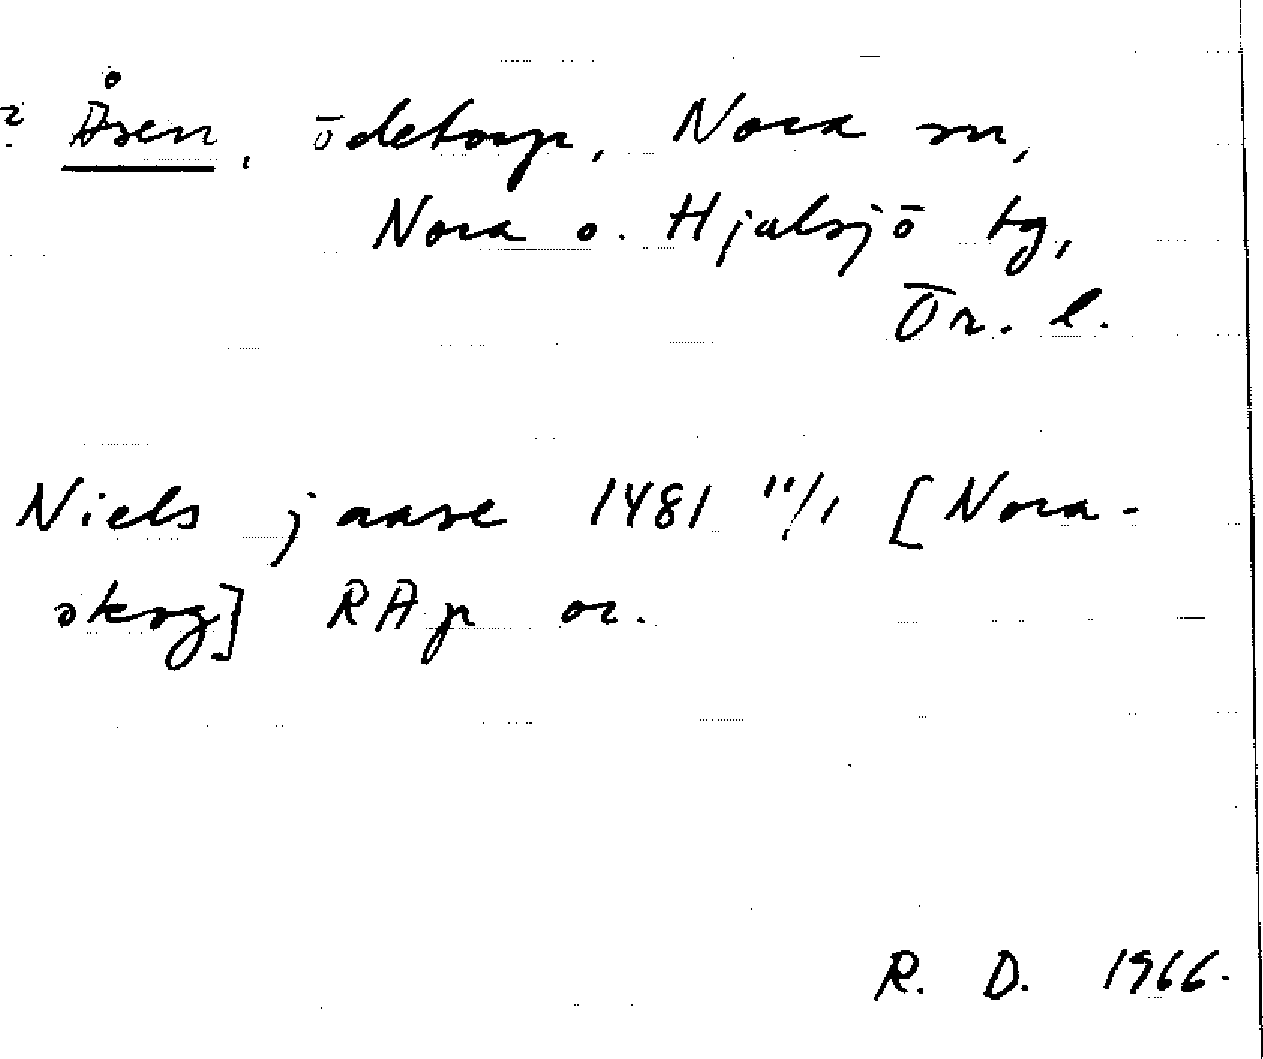 ? Åsen, ödetorp, Nora sn,
Nora o. Hjulsjö tg,
Ör. l.
Niels j aase 1481 11/1 [Nora-
skog] RAp or.
R. D. 1966.